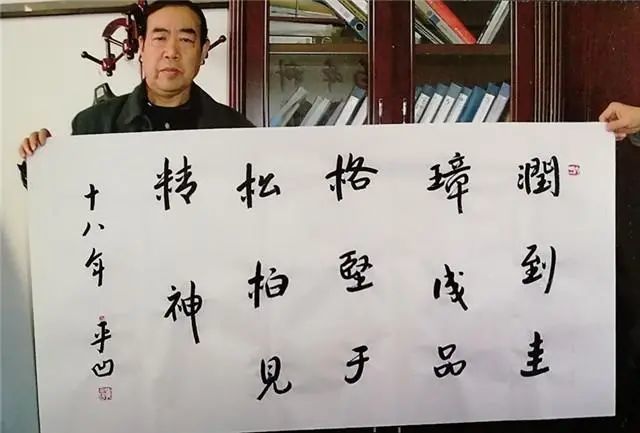 潤到圭
璋成品
格堅于
松柏見
精神
十八年
平凹